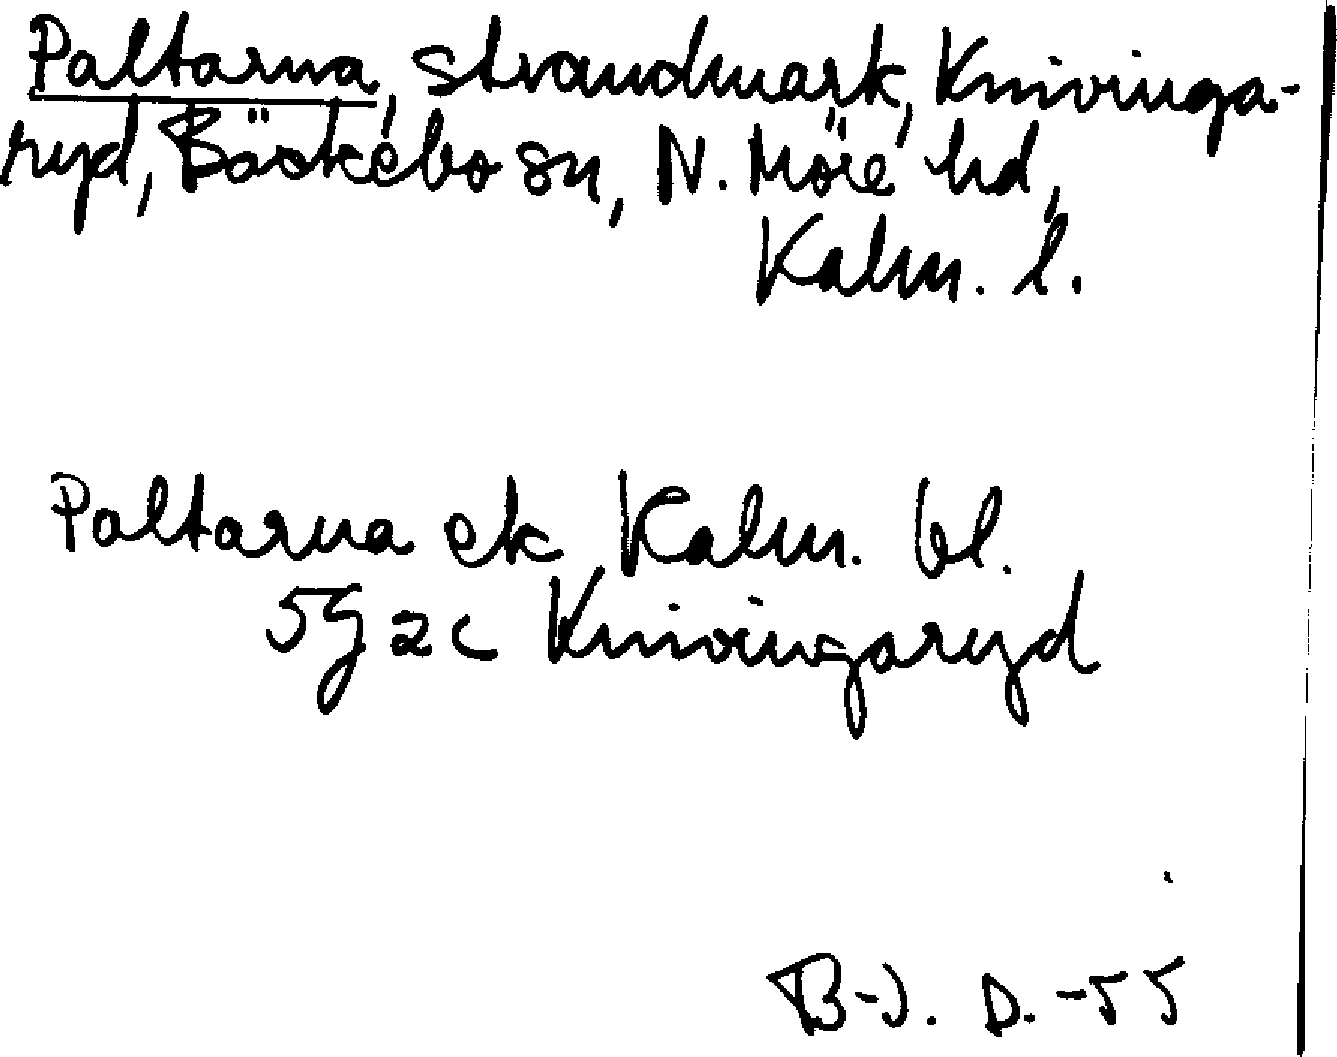 Paltarna, strandmark, Knivinga-
ryd, Bäckebo sn, N. Möre hd,
Kalm. l.
Paltarna ek Kalm. bl.
5G 2c Knivingaryd
B-J. D. -55